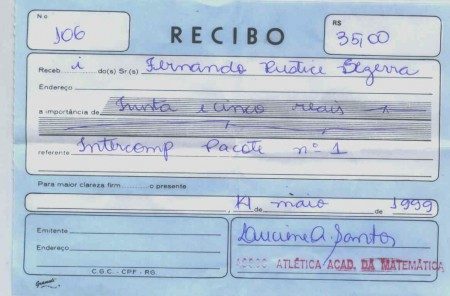 No R$
106 RECIBO 35,00
Receb i do(s) Sr(s) Fernando Bezerra
Endereço
a importância de trinta e cinco reais
referente Intercomp Pacote nº 1
Para maior clareza firm o presente
14 de maio de 1999
Emitente
Endereço
C.G.C. - CPF - RG.
Luciene A. Santos
ATLÉTICA ACAD. DA MATEMÁTICA